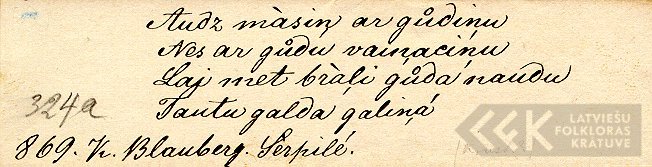 Audz màsiņ ar gůdiņu
Nes ar gůdu vaiņaciņu
Laj met bràļi gůda naudu
Tautu galda galiņá
324a
869. K. Blauberg. Serpilé.
LATVIEŠU
FOLKLORAS
LFK KRĀTUVE